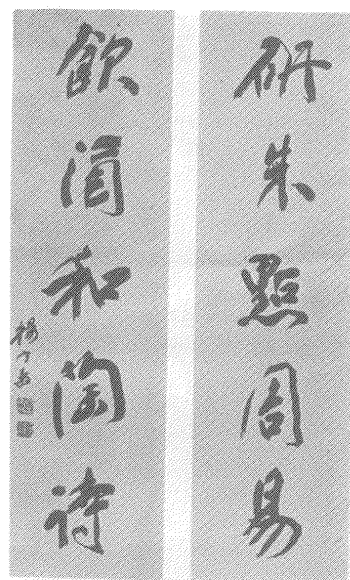 研朱點周易
飲酒和陶詩
楊